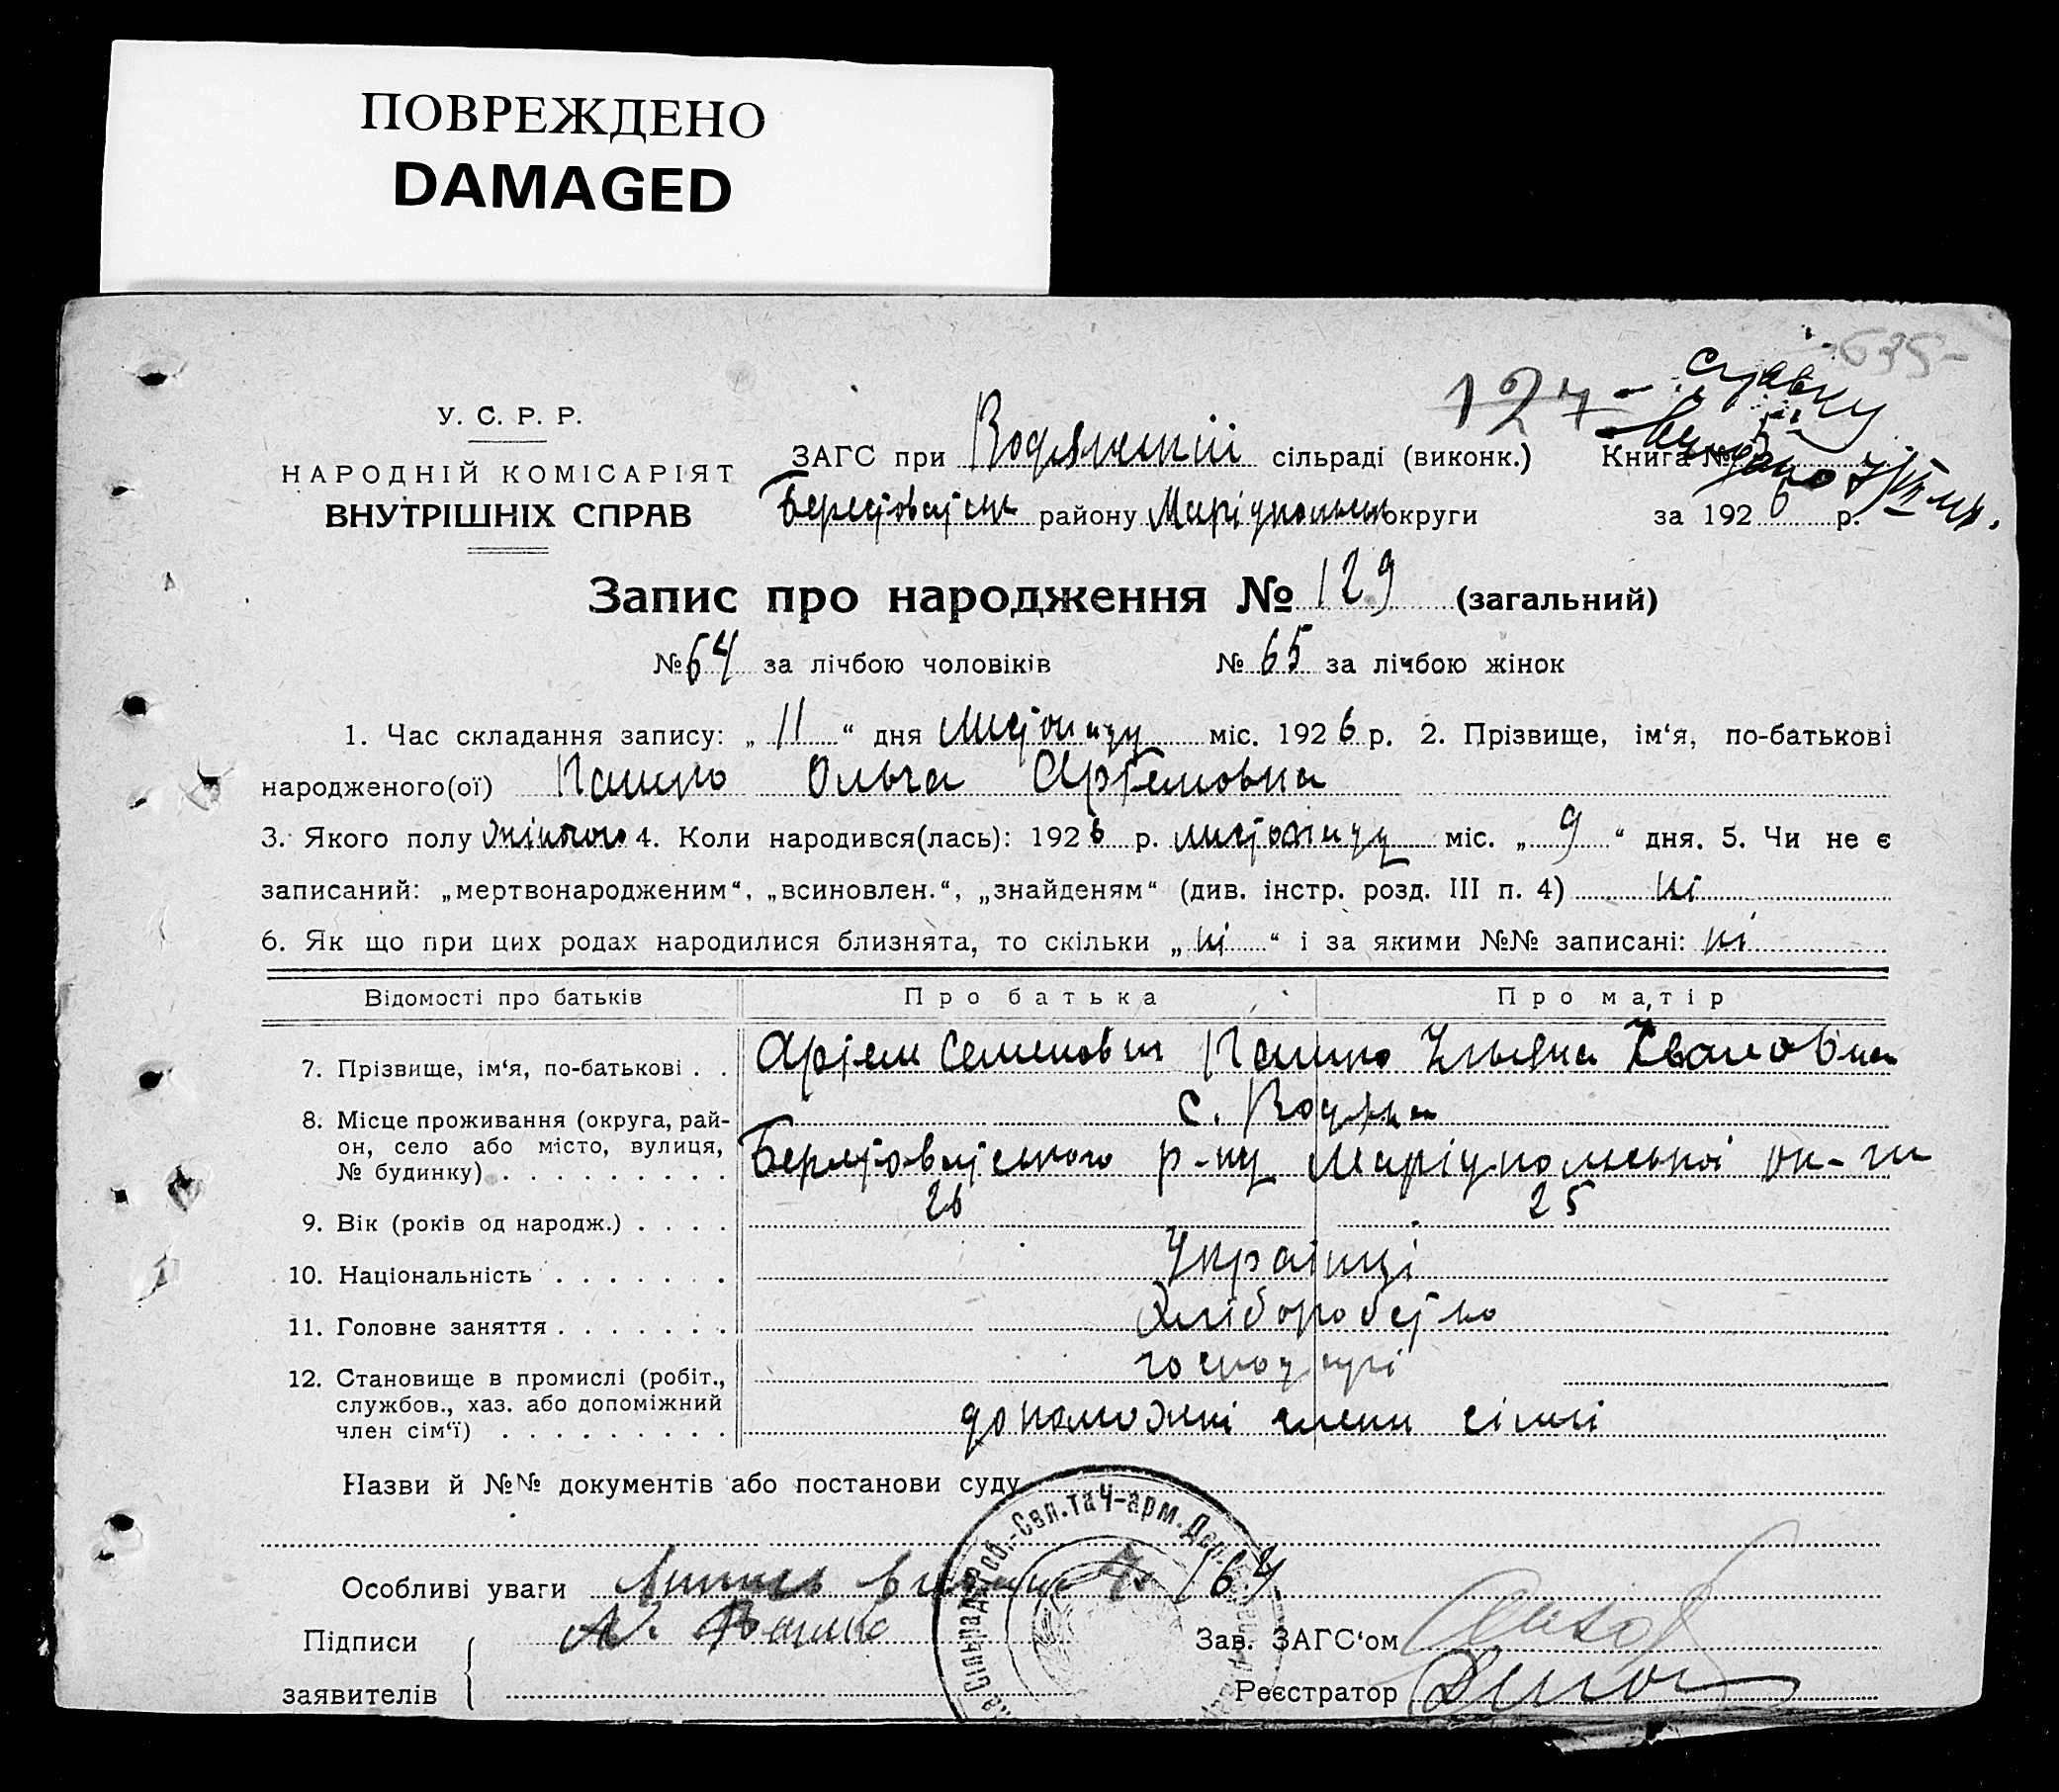 ПОВРЕЖДЕНО
DAMAGED
635-
127 - справку
У. С. Р. Р.
НАРОДНІЙ КОМІСАРІЯТ
ВНУТРІШНІХ СПРАВ
ЗАГС при Водянській сільраді (виконк.) Книга №
району округи за 1926 р.
Запис про народження № 129 (загальний)
№ 64 за лічбою чоловіків № 65 за лічбою жінок
1. Час складання запису: „ 11 “ дня листопаду міс. 1926 р. 2. Прізвище, ім‘я, по-батькові
народженого(ої) Ольга Артемовна
3. Якого полу жіночого 4. Коли народився(лась): 1926 р. листопаду міс. „ 9 “ дня. 5. Чи не є
записаний: „мертвонародженим“, „всиновлен.“, „знайденям“ (див. інстр. розд. III п. 4) ні
6. Як що при цих родах народилися близнята, то скільки „ ні “ і за якими №№ записані: ні
Відомості про батьків Про батька Про матір
7. Прізвище, ім‘я, по-батькові . . Артем Семенович Ульяна Івановна
8. Місце проживання (округа, рай-
он, село або місто, вулиця,
№ будинку) . . . . . . . . .
с. Водяна
р-ну Маріупольської ок-ги
9. Вік (років од народж.) . . . . 26 25
10. Національність . . . . . . . Українці
11. Головне заняття . . . . . . . Хліборобство
12. Становище в промислі (робіт.,
службов., хаз. або допоміжний
член сім‘ї) . . . . . . . . .
господарі
допоможні члени сімї
Назви й №№ документів або постанови суду
Особливі уваги 164
Підписи
заявителів
Зав. ЗАГС‘ом
Реєстратор
Роб.-Сел. та Ч-арм. Деп.